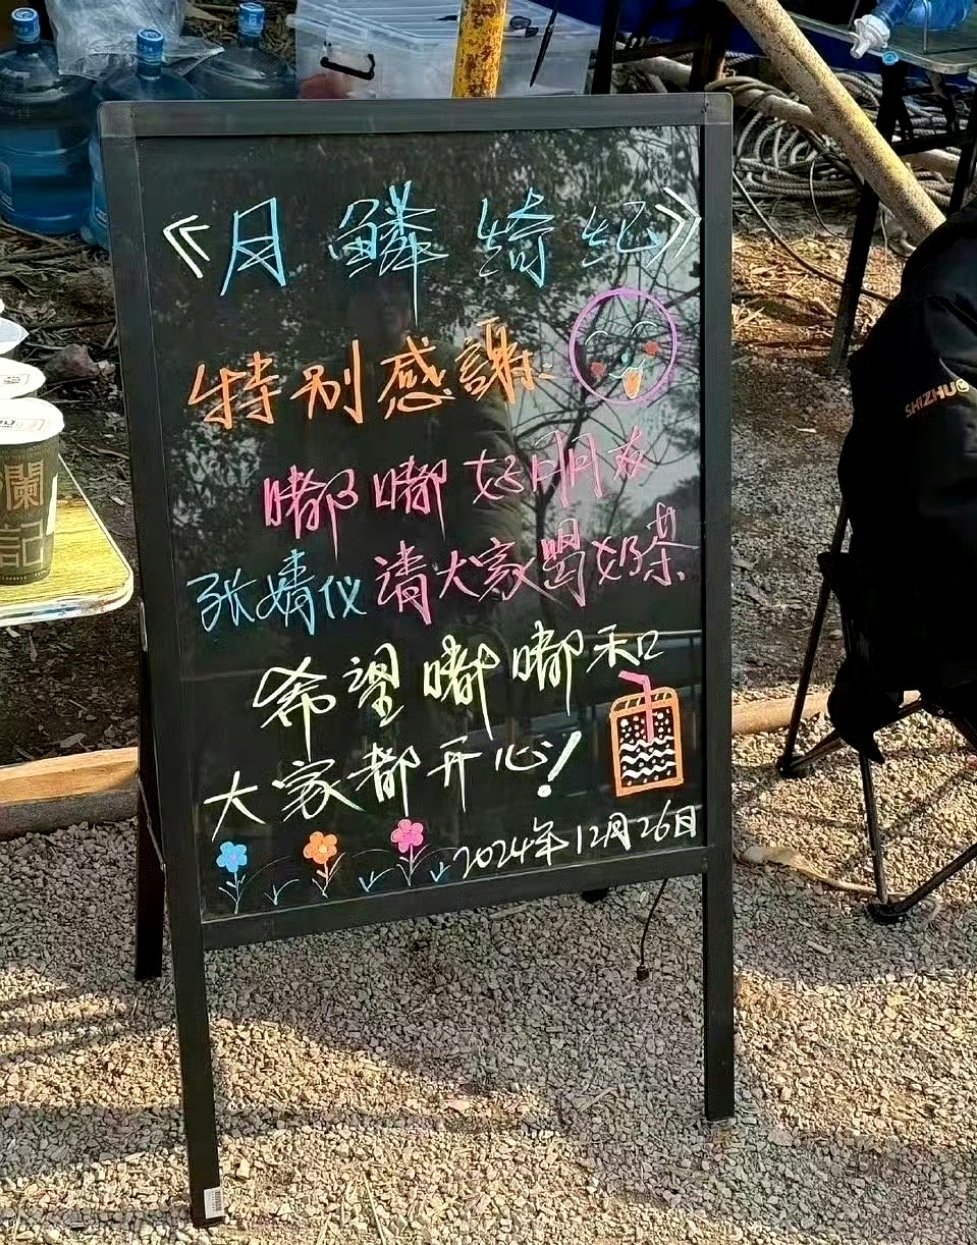 《月鳞绮纪》
特别感謝
嘟嘟好朋友
张婧仪请大家喝奶茶
希望嘟嘟和
大家都开心!
2024年12月26日
瀾
記
SHIZHU